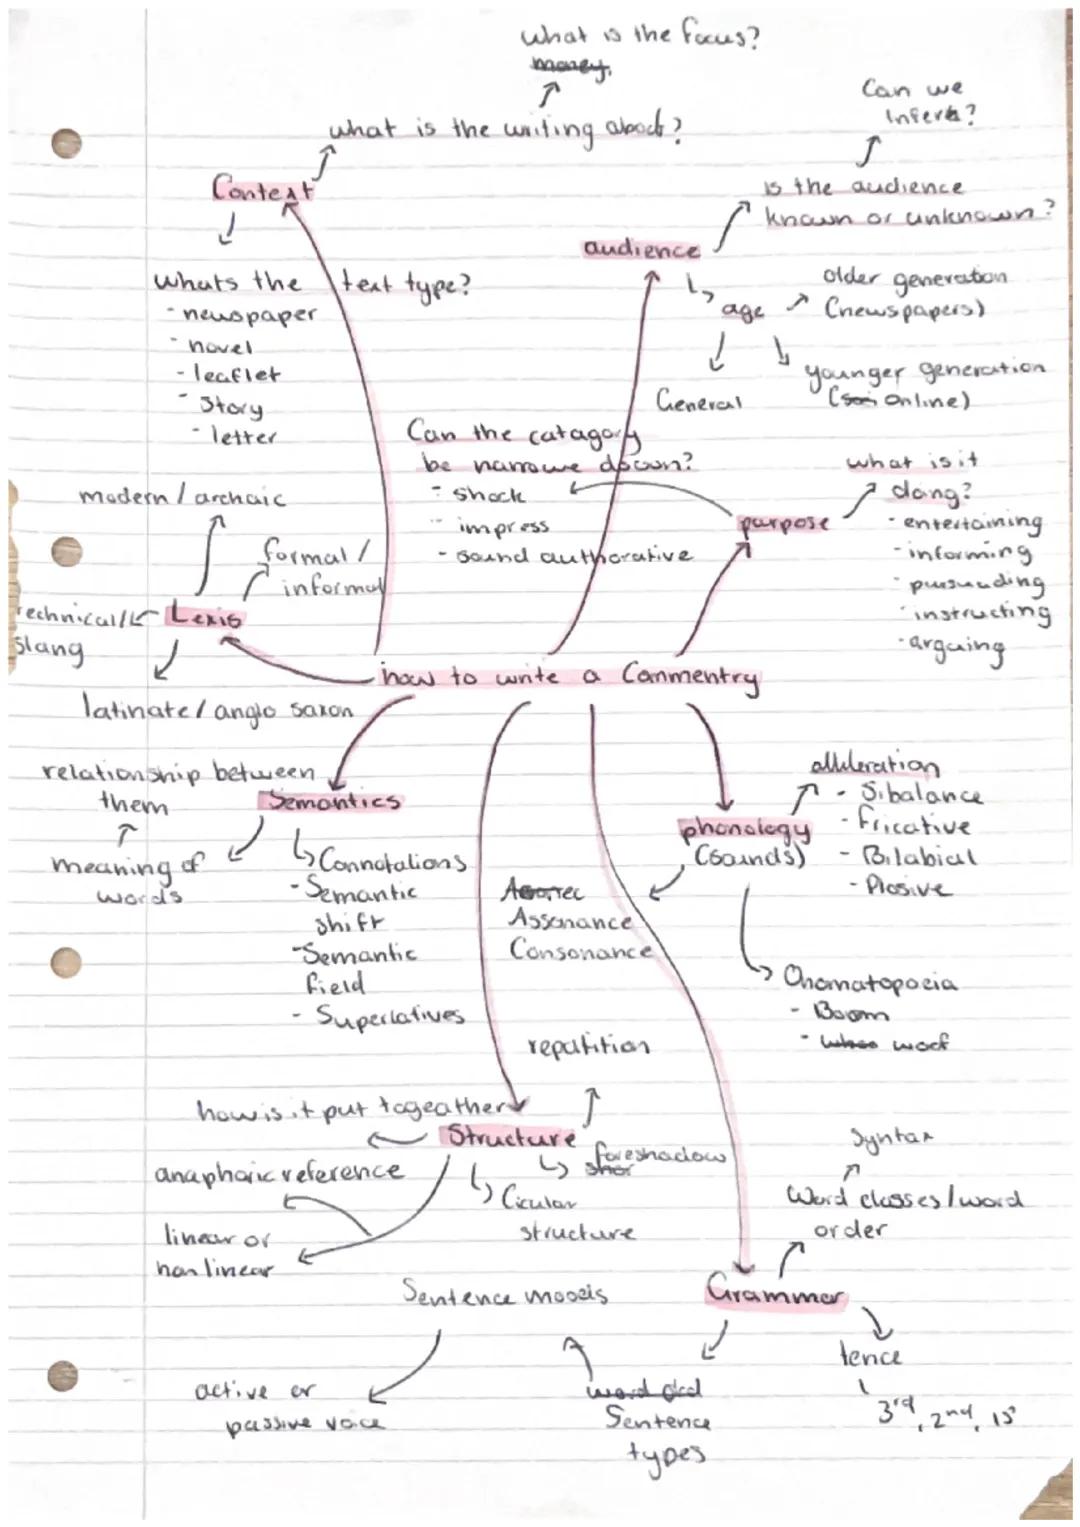 what is the focus?
money,
what is the writing about?
Context
whats the text type?
- newspaper
- novel
- leaflet
- Story
- letter
Can we
infer?
is the audience
known or unknown?
audience
age
older generation
(newspapers)
younger generation
(online)
General
Can the catagory
be narrowe down?
- shock
- impress
- sound authorative
purpose
what is it
doing?
- entertaining
- informing
- pursuading
- instructing
- arguing
modern / archaic
formal /
informal
Lexis
Technical/
Slang
latinate / anglo saxon
how to write a Commentry
relationship between
them
meaning of
words
Semantics
Connotations
- Semantic
shift
- Semantic
field
- Superlatives
phonology
(sounds)
alliteration
- Sibalance
- Fricative
- Bilabial
- Plosive
Assonance
Consonance
Onomatopoeia
- Boom
- woof
repatition
how is it put togeather
Structure
foreshadow
Cicular
structure
anaphoric reference
linear or
non linear
Syntax
Word classes / word
order
Grammer
tence
3rd, 2nd, 1st
Sentence moods
active or
passive voice
Sentence
types